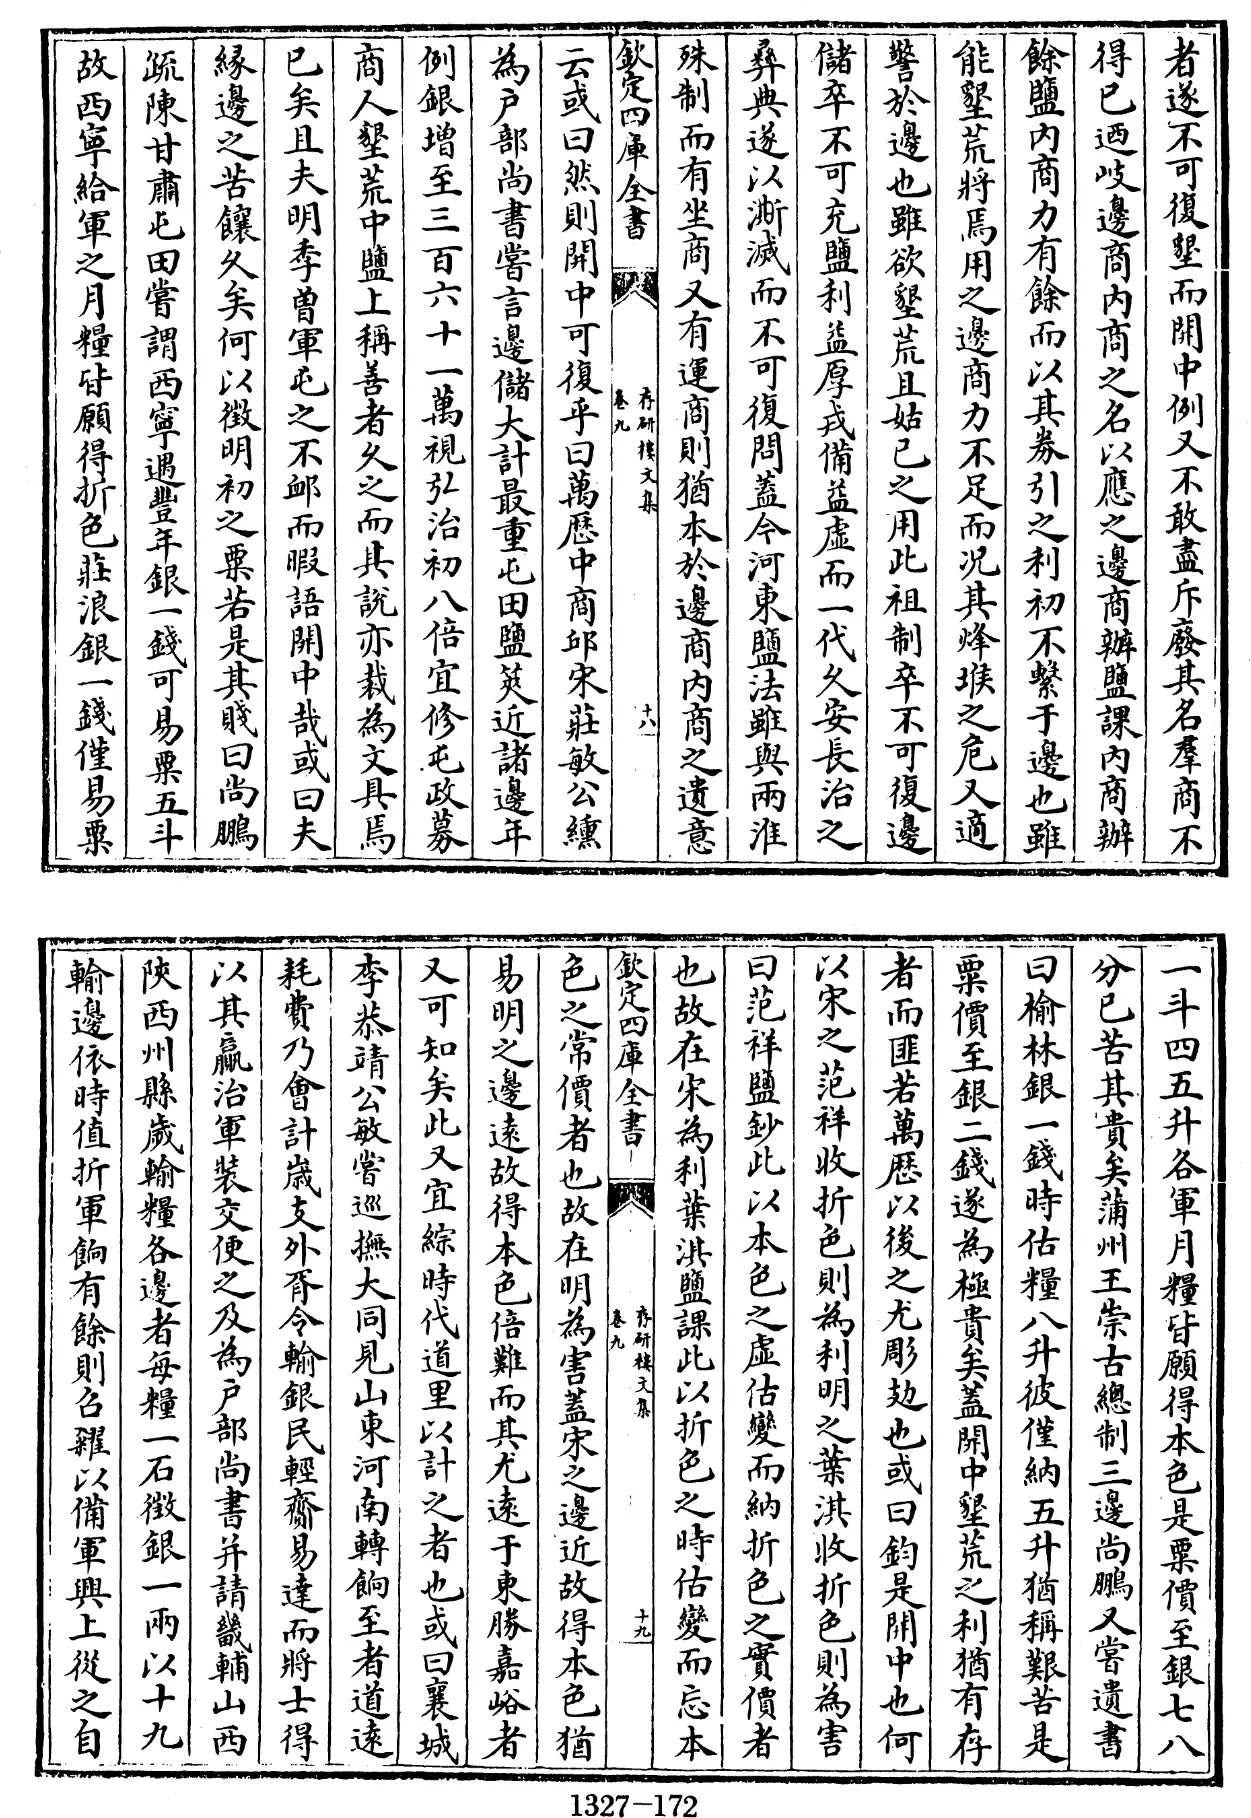 者遂不可復墾而開中例又不敢盡斥廢其名羣商不
得已迺岐邊商内商之名以應之邊商辦鹽課内商辦
餘鹽内商力有餘而以其券引之利初不繫于邊也雖
能墾荒將焉用之邊商力不足而况其烽堠之危又適
警於邊也雖欲墾荒且姑已之用此祖制卒不可復邊
儲卒不可充鹽利益厚戎備益虚而一代久安長治之
彝典遂以澌滅而不可復問蓋今河東鹽法雖與兩淮
殊制而有坐商又有運商則猶本於邊商内商之遺意
欽定四庫全書
存研樓文集
卷九
十八
云或曰然則開中可復乎曰萬歴中商邱宋莊敏公纁
為户部尚書嘗言邊儲大計最重屯田鹽筴近諸邊年
例銀增至三百六十一萬視弘治初八倍宜修屯政募
商人墾荒中鹽上稱善者久之而其說亦裁為文具焉
已矣且夫明季曽軍屯之不衈而暇語開中哉或曰夫
緣邊之苦饟久矣何以徴明初之粟若是其賤曰尚鵬
疏陳甘肅屯田嘗謂西寧遇豐年銀一錢可易粟五斗
故西寧給軍之月糧皆願得折色莊浪銀一錢僅易粟
一斗四五升各軍月糧皆願得本色是粟價至銀七八
分已苦其貴矣蒲州王崇古總制三邊尚鵬又嘗遺書
曰榆林銀一錢時估糧八升彼僅納五升猶稱艱苦是
粟價至銀二錢遂為極貴矣蓋開中墾荒之利猶有存
者而匪若萬歴以後之尤彫攰也或曰鈞是開中也何
以宋之范祥收折色則為利明之葉淇收折色則為害
曰范祥鹽鈔此以本色之虚估變而納折色之實價者
也故在宋為利葉淇鹽課此以折色之時估變而忘本
欽定四庫全書
存研樓文集
卷九
十九
色之常價者也故在明為害蓋宋之邊近故得本色猶
易明之邊遠故得本色倍難而其尤遠于東勝嘉峪者
又可知矣此又宜綜時代道里以計之者也或曰襄城
李恭靖公敏嘗巡撫大同見山東河南轉餉至者道遠
耗費乃會計歲支外胥令輸銀民輕齎易達而將士得
以其贏治軍裝交便之及為户部尚書并請畿輔山西
陜西州縣歲輸糧各邊者每糧一石徴銀一兩以十九
輸邊依時值折軍餉有餘則召糴以備軍興上從之自
1327-172